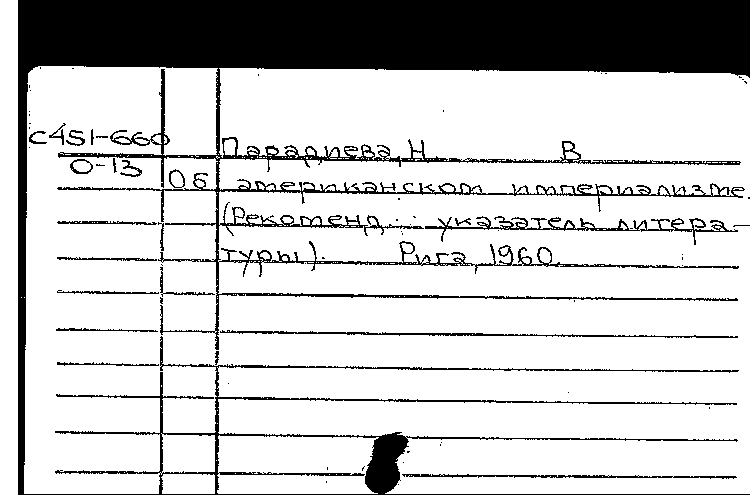 С451-660
0-13
Парадиева, Н В
Об американском империализме.
(Рекоменд. указатель литера-
туры). Рига, 1960.